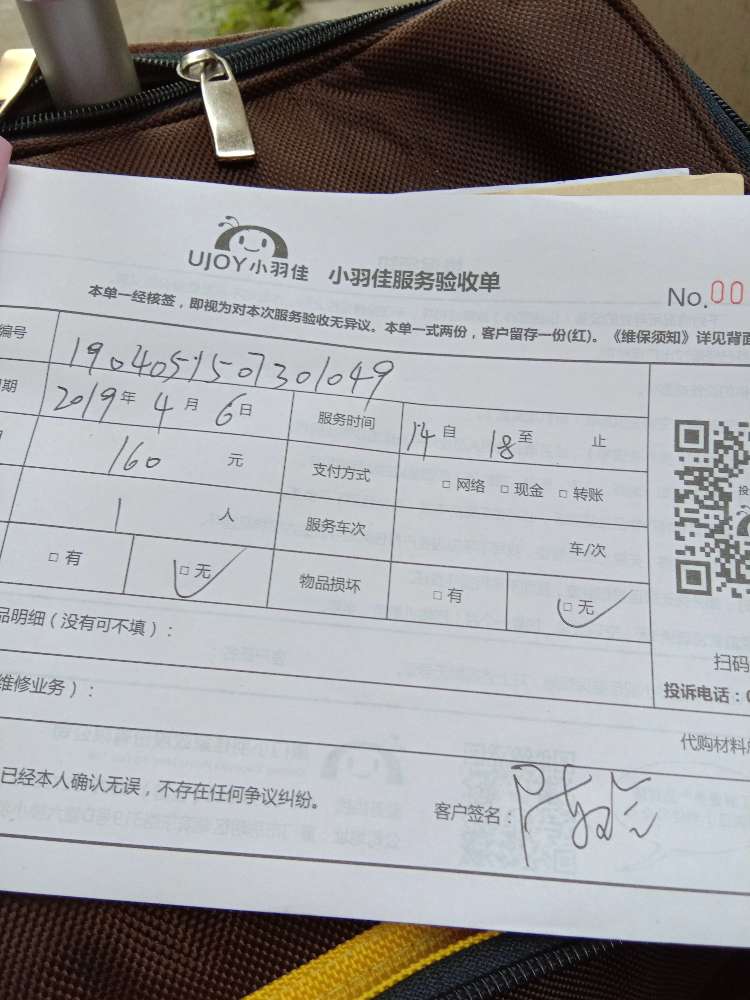 UJOY小羽佳 小羽佳服务验收单
No.00
本单一经核签，即视为对本次服务验收无异议。本单一式两份，客户留存一份(红)。《维保须知》详见背面
编号 1904051507301049
期 2019年4月6日 服务时间 14自 18至 止
160 元 支付方式 □网络 □现金 □转账
1 人 服务车次 车/次
□有 □无 物品损坏 □有 □无
品明细（没有可不填）：
扫码
维修业务）：
投诉电话：0
代购材料
已经本人确认无误，不存在任何争议纠纷。 客户签名：